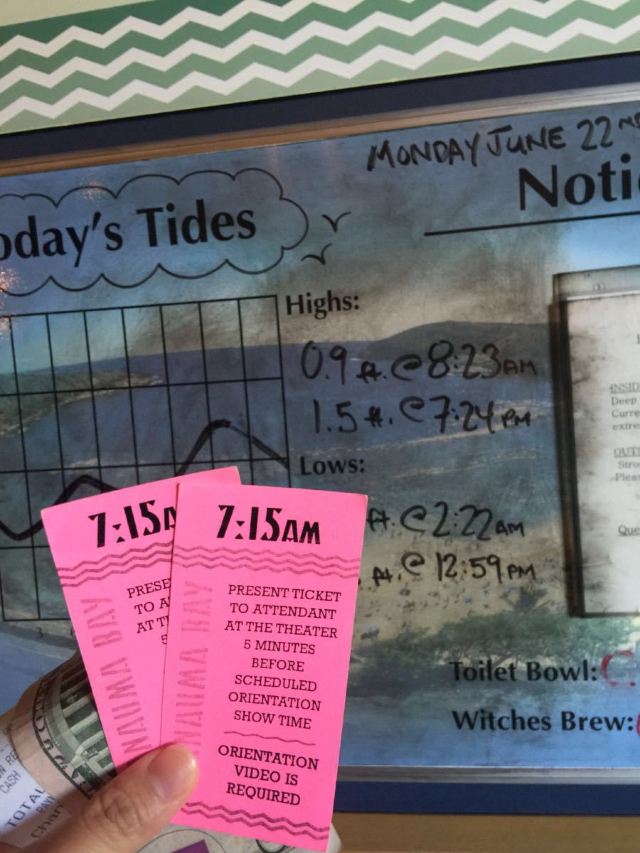 MONDAY JUNE 22ND
oday's Tides
Notic
Highs:
0.9 ft. @ 8:23AM
1.5 ft. @ 7:24 PM
Lows:
ft. @ 2:22AM
ft. @ 12:59PM
INSID
Deep
Curre
extre
OUT
Stro
Pleas
Que
Toilet Bowl: C
Witches Brew:
7:15A
PRESE
TO A
AT TH
5
NAUMA BAY
7:15AM
PRESENT TICKET
TO ATTENDANT
AT THE THEATER
5 MINUTES
BEFORE
SCHEDULED
ORIENTATION
SHOW TIME
ORIENTATION
VIDEO IS
REQUIRED
NAUMA BAY
CASH
TOTAL
Chan